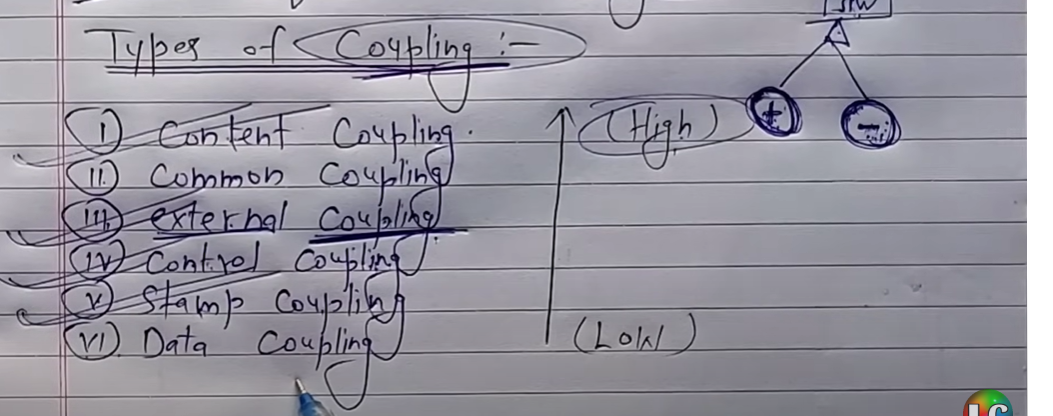 Types of Coupling :-
S/W
I) Content Coupling.
(High)
+
-
II) Common Coupling
III) external Coupling
IV) Control Coupling
V) Stamp Coupling
VI) Data Coupling
(Low)
LG